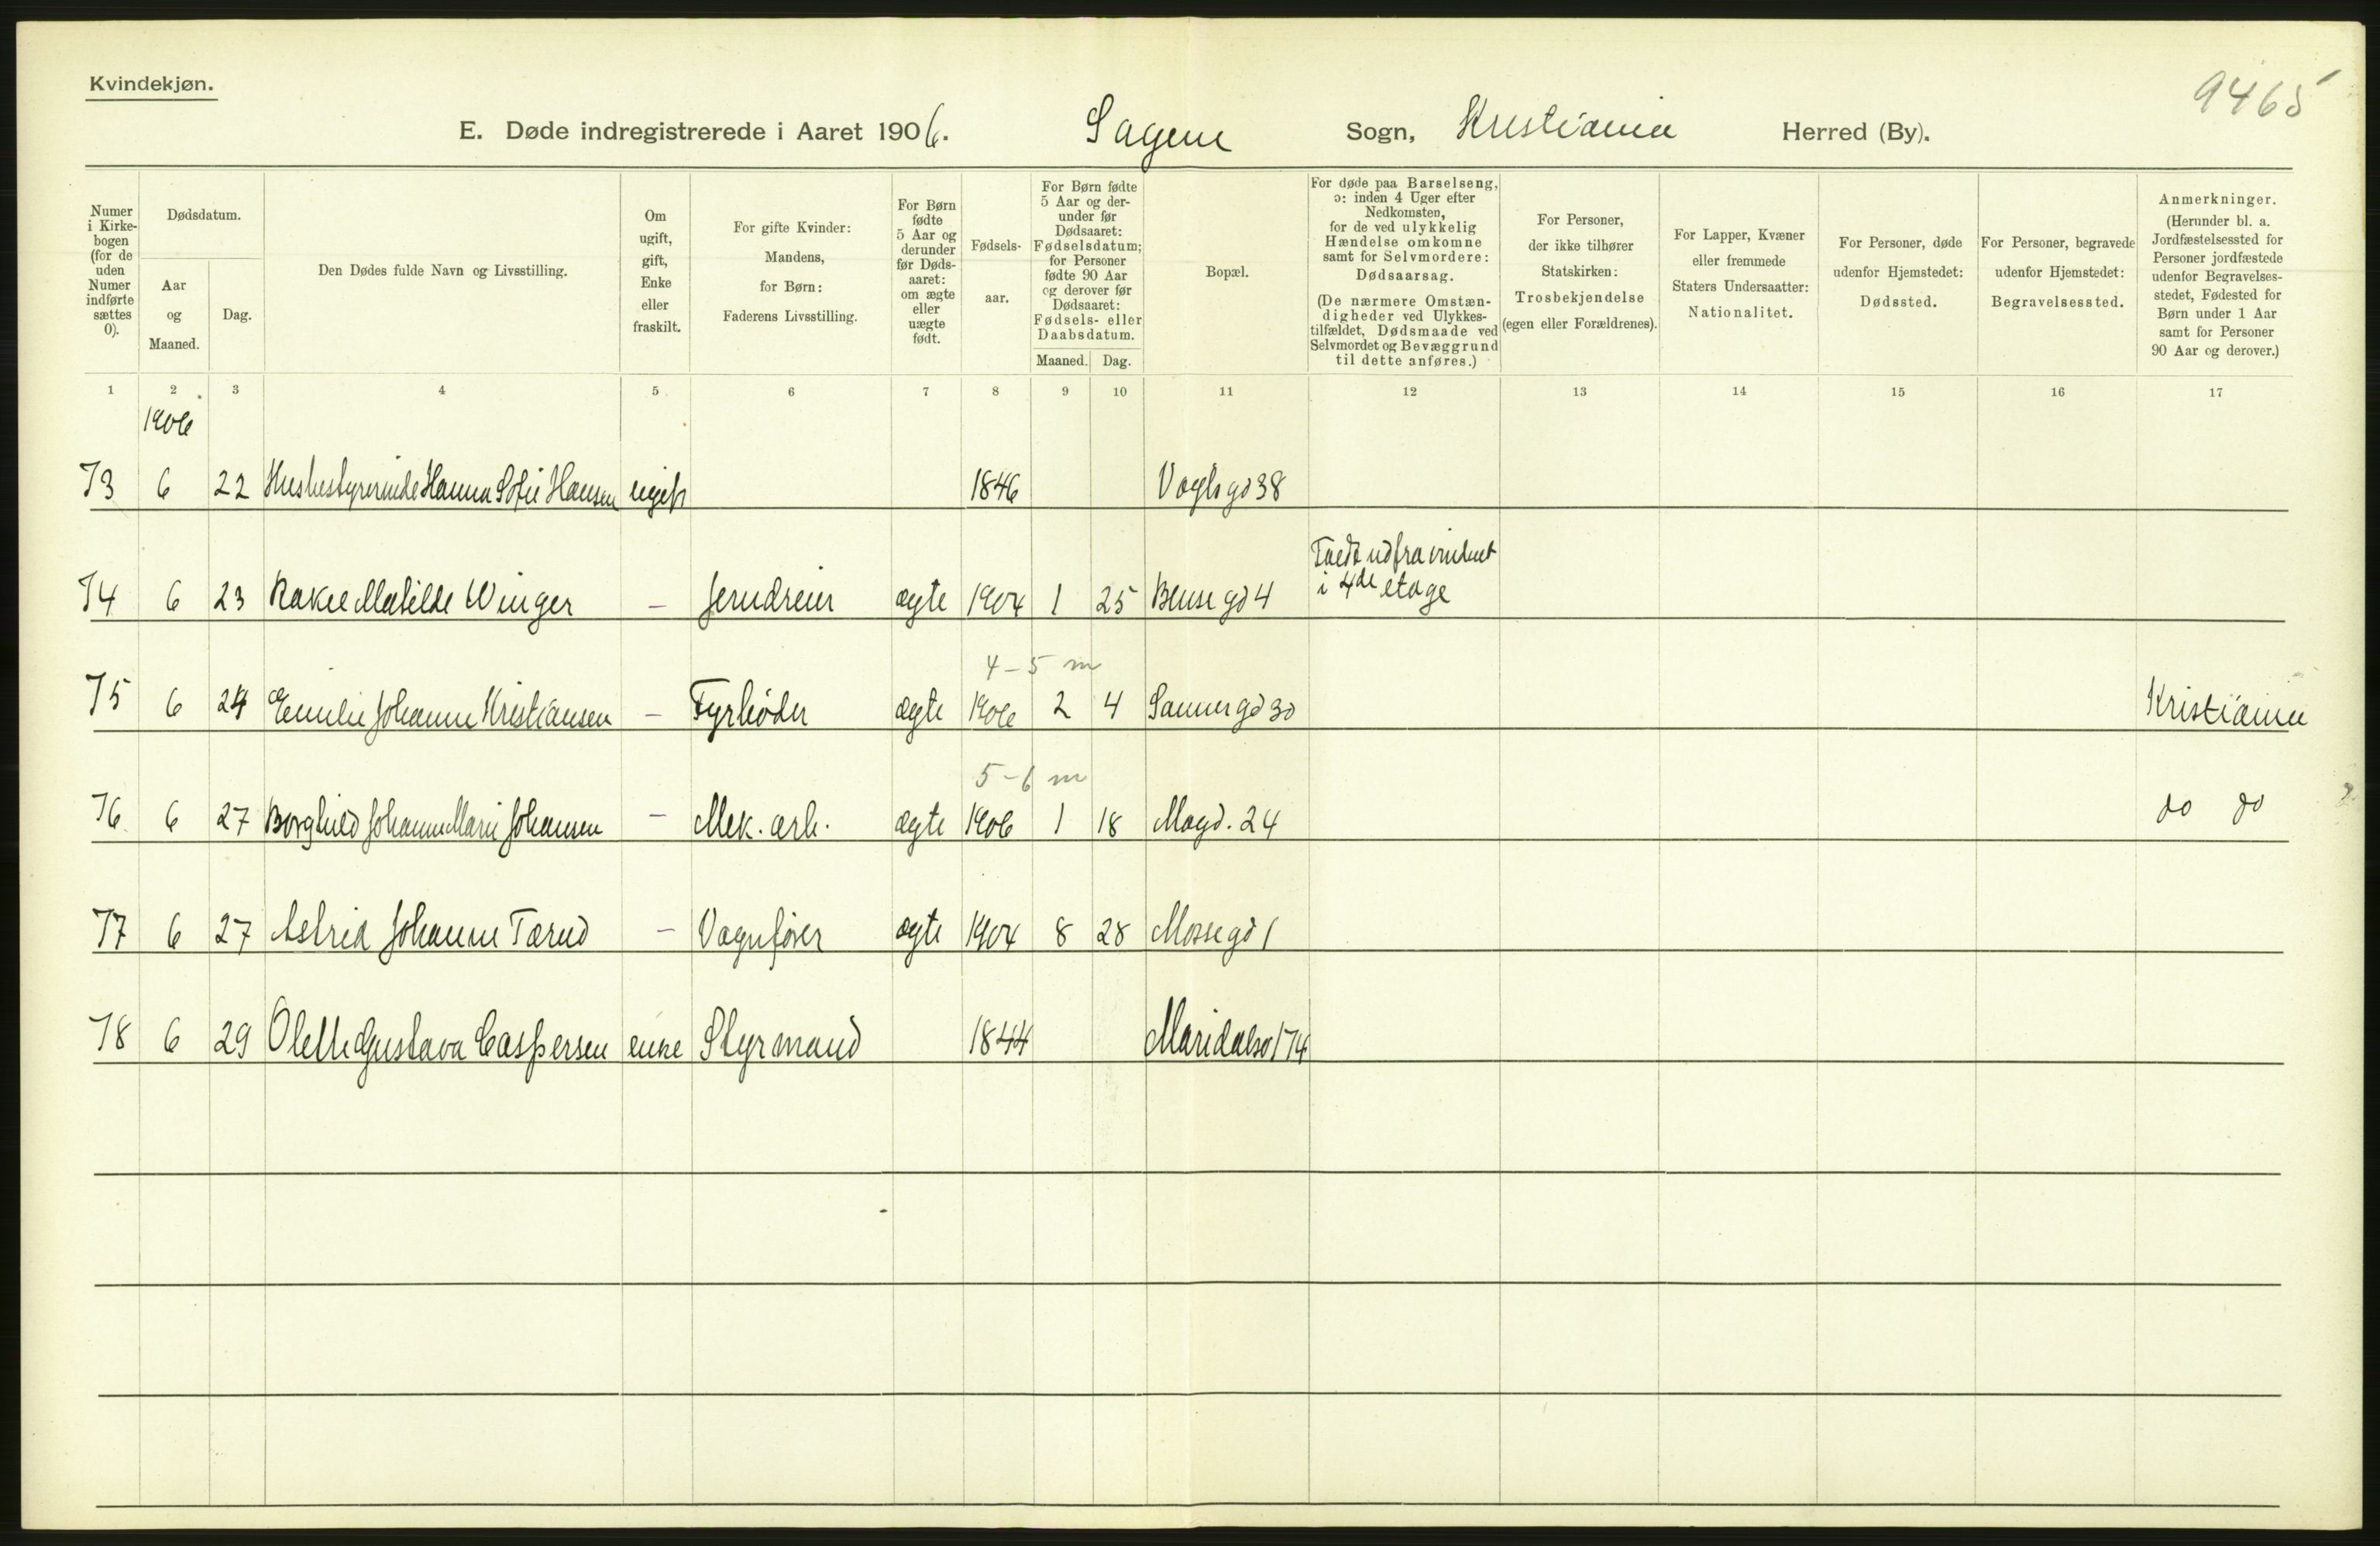 Kvindekjøn.
9465
E. Døde indregistrerede i Aaret 1906. Sagene Sogn, Kristiania Herred (By).
Numer i Kirkebogen (for de uden Numer indførte sættes 0).
Dødsdatum.
Aar og Maaned.
Dag.
Den Dødes fulde Navn og Livsstilling.
Om ugift, gift, Enke eller fraskilt.
For gifte Kvinder: Mandens, for Børn: Faderens Livsstilling.
For Børn fødte 5 Aar og derunder før Dødsaaret: om ægte eller uægte født.
Fødselsaar.
For Børn fødte 5 Aar og derunder før Dødsaaret: Fødselsdatum; for Personer fødte 90 Aar og derover før Dødsaaret: Fødsels- eller Daabsdatum.
Maaned. Dag.
Bopæl.
For døde paa Barselseng, ɔ: inden 4 Uger efter Nedkomsten, for de ved ulykkelig Hændelse omkomne samt for Selvmordere: Dødsaarsag.
(De nærmere Omstændigheder ved Ulykkestilfældet, Dødsmaade ved Selvmordet og Bevæggrund til dette anføres.)
For Personer, der ikke tilhører Statskirken: Trosbekjendelse (egen eller Forældrenes).
For Lapper, Kvæner eller fremmede Staters Undersaatter: Nationalitet.
For Personer, døde udenfor Hjemstedet: Dødssted.
For Personer, begravede udenfor Hjemstedet: Begravelsessted.
Anmerkninger.
(Herunder bl. a. Jordfæstelsessted for Personer jordfæstede udenfor Begravelsesstedet, Fødested for Børn under 1 Aar samt for Personer 90 Aar og derover.)
1 2 3 4 5 6 7 8 9 10 11 12 13 14 15 16 17
1906
73 6 22 Husbestyrerinde Hanna Sofie Hansen ugift 1846 Vogtsgd 38
Faldt ud fra vinduet
74 6 23 Rakel Matilde Winger - Jerndreier ægte 1904 1 25 Bensegd 4 i 4de etage
4-5 m
75 6 24 Emilie Johanne Kristiansen - Fyrbøder ægte 1906 2 4 Sannergd 30 Kristiania
5-6 m
76 6 27 Borghild Johanne Marie Johansen - Mek. arb. ægte 1906 1 18 Mogd. 24 do do
77 6 27 Astrid Johanne Tarud - Vognfører ægte 1904 8 28 Mossegd 1
78 6 29 Olette Gustava Caspersen enke Styrmand 1844 Maridalsv 174